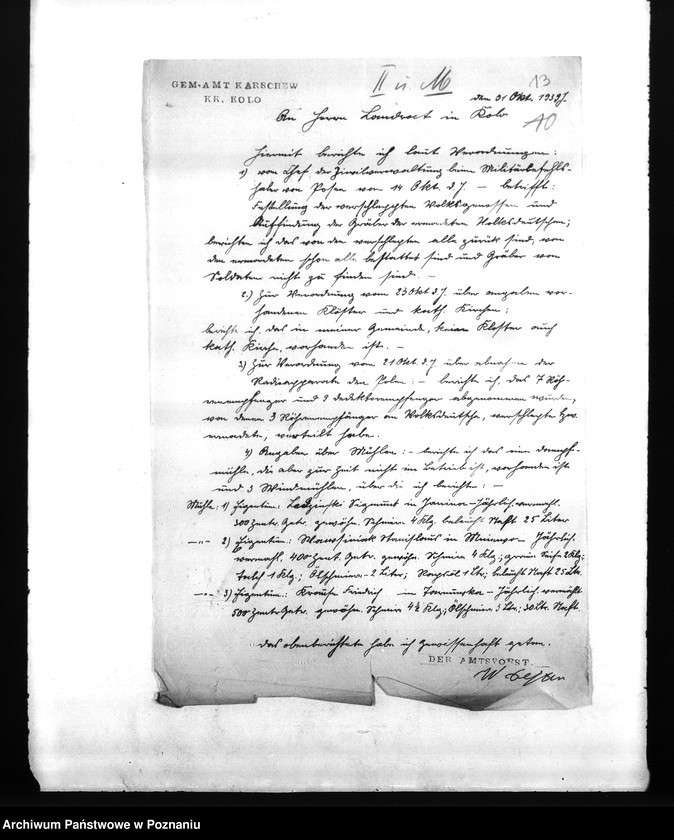 GEM.-AMT KARSCHEW
KR. KOLO
II u. M
13
den 31 Okt. 1939 J.
An Herrn Landrat in Kolo
A0
Hiermit berichte ich laut Verordnungen:
1) von Chef der Zivilverwaltung beim Militärbefehls-
haber von Posen vom 14 Okt. d. J. — betrifft:
Festellung der verschleppten Volksgenossen und
Auffindung der Gräber der ermordeten Volksdeutschen;
berichte ich das von den verschlepten alle zurük sind, von
den ermordeten schon alle bestattet sind und Gräber von
Soldaten nicht zu finden sind. —
2.) Zur Verordnung vom 23 Okt d. J. über angaben vor-
handenen Klöster und kath. Kirchen:
berichte ich, das in meiner Gemeinde, keine Kloster auch
kath. Kirche, vorhanden ist. —
3) Zur Verordnung vom 21 Okt. d. J. über abnahme der
Radioapparate den Polen: — berichte ich, das 7 Röh-
renempfenger und 9 dedektorempfenger abgenommen wurden,
von denen 3 Röhrenempfänger an Volksdeutsche, verschlepte bzw.
ermordete, verteilt habe.
4) Angaben über Mühlen: — berichte ich das eine dampf-
mühle, die aber zur Zeit nicht im Betrieb ist, vorhanden ist
und 3 Windmühlen, über die ich berichte: —
Mühle: 1) Eigentüm: Sigmunt in Janina — Jährlich. vermahl.
300 Zentr. Getr. gewöhn. Schmier 4 Klg. beleucht Naft 25 Liter
—„— 2) Eigentüm: Stanislaus in — Jährlich.
vermahl. 400 Zent. Getr. gewöhn. Schmier 4 Klg.; grüne Seife 2 Klg;
1 Klg.; Ölschmiere — 2 Liter; 1 Ltr; beleucht Naft 25 Ltr.
—„— 3) Eigentüm: Krause Friedrich in — Jährlich. vermahlt
500 Zentr Getr. gewöhn. Schmier 4½ Klg; Ölschmiere 3 Ltr; 30 Ltr. Naft
Das obenberichtete habe ich gewissenhaft getan.
DER AMTSVORST.
Archiwum Państwowe w Poznaniu